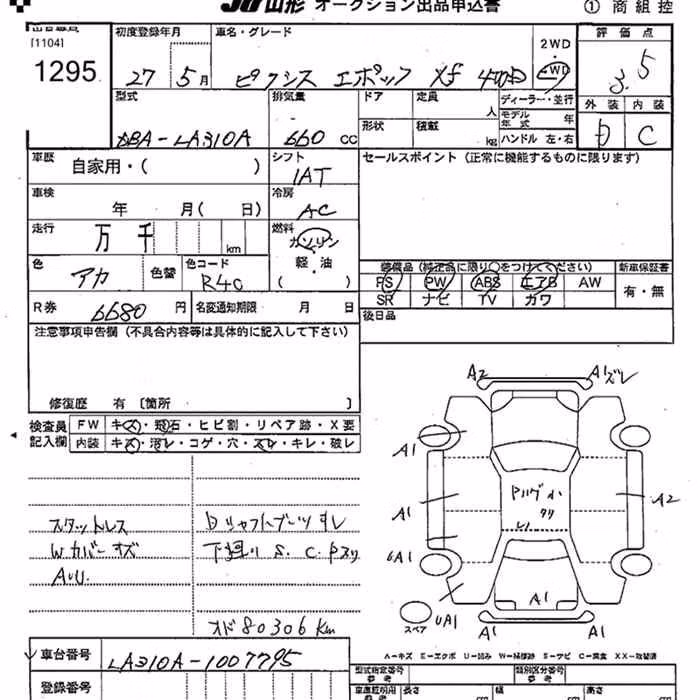 JU山形 オークション出品申込書 ① 商組控
[1104]
1295
初度登録年月 27年 5月
車名・グレード ピクシス エポック Xf 4WD
2WD
4WD
評価点 3.5
外装 D 内装 C
型式 DBA-LA310A
排気量 660 cc
ドア
定員 人
形状
積載 kg
ディーラー・並行
モデル年式 年
ハンドル 左・右
車歴 自家用・( )
シフト IAT
セールスポイント (正常に機能するものに限ります)
車検 年 月( 日)
冷房 AC
走行 万 千 km
燃料 ガソリン
軽・油
( )
色 アカ
色替
色コード R40
装備品 (純正品に限り○をつけてください)
新車保証書
PS PW ABS エアB AW
有・無
SR ナビ TV カワ
R券 6680 円
名変通知期限 月 日
後日品
注意事項申告欄 (不具合内容等は具体的に記入して下さい)
修復歴 有 [箇所 ]
検査員記入欄
FW キズ・飛石・ヒビ割・リペア跡・X要
内装 キズ・汚レ・コゲ・穴・スレ・キレ・破レ
スタットレス
Wカバー キズ
オド 80306 Km
A2
A1ズレ
A1
A1
A2
UA1
UA1
A1
A1
A1
スペア
A-キズ E-エクボ U-凹み W-補修跡 S-サビ C-腐食 XX-取替済
車台番号 LA310A-1007795
登録番号
型式指定番号 参考
類別区分番号 参考
長さ cm
幅 cm
高さ cm